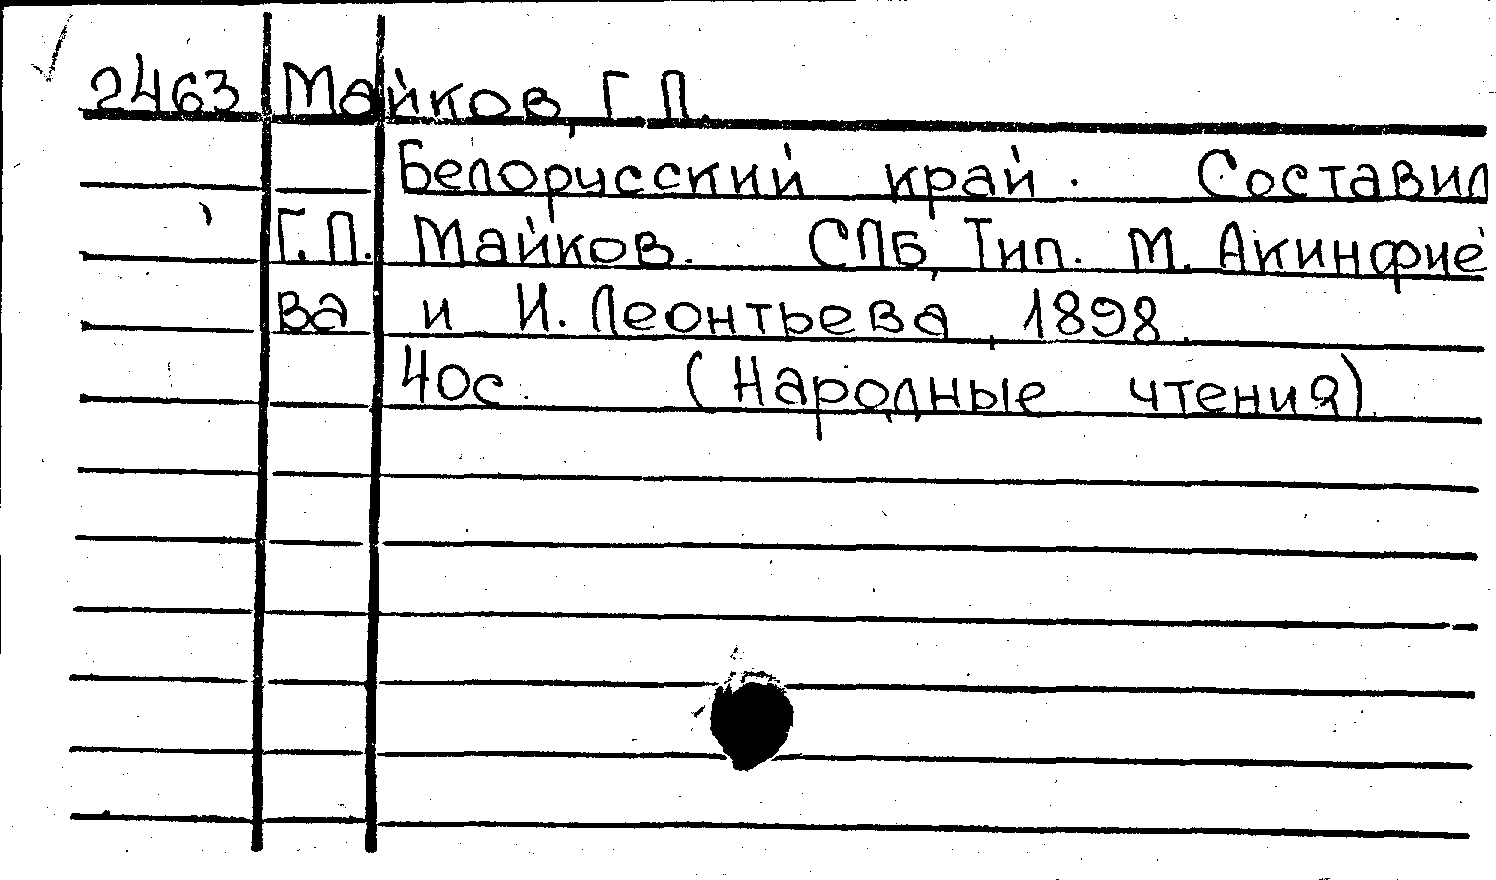 2463 Майков, Г.П.
Белорусский край. Составил
Г.П. Майков. СПб, Тип. М. Акинфие
ва и И. Леонтьева, 1898.
40с. (Народные чтения).